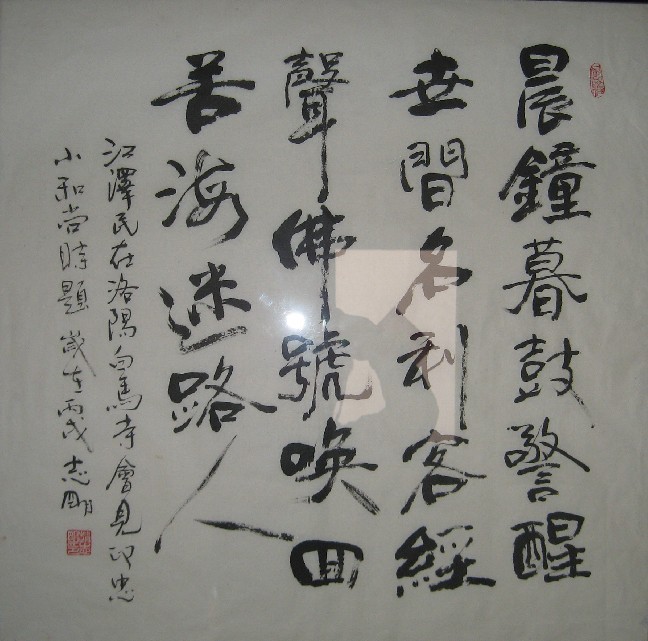 晨鐘暮鼓警醒
世間名利客經
聲佛號喚回
苦海迷路人
江澤民在洛陽白馬寺會見印忠
小和尚時題 歲在丙戌 志剛